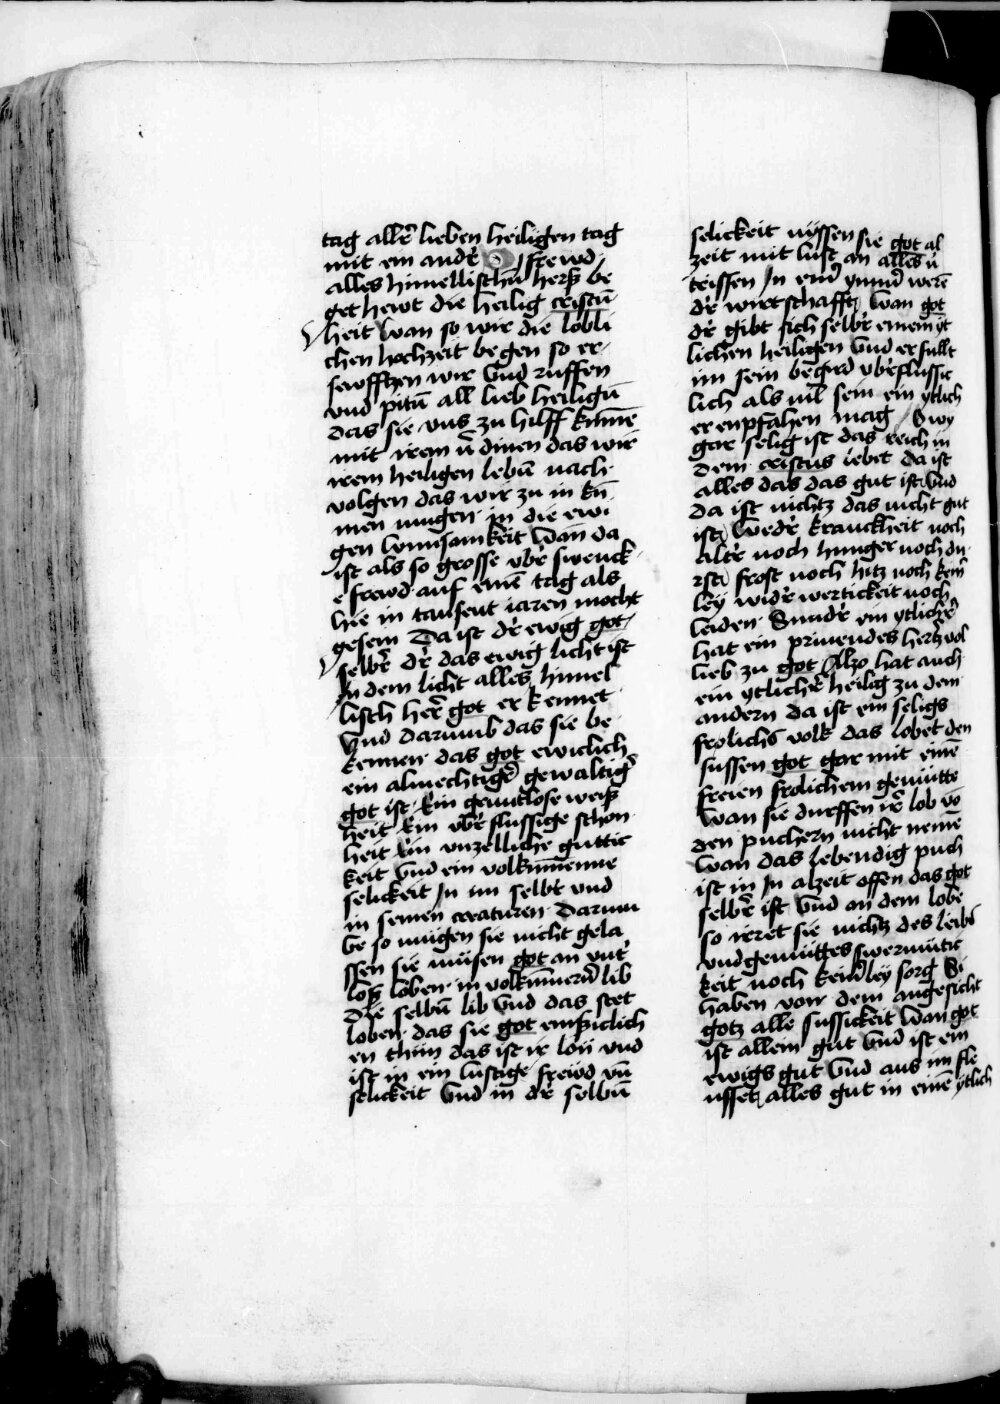 tag allr̄ lieben heiligen tag
mit ein andr̄ O frewd
alles himellischn̄ hersz be
get hewt die heilig cristn̄
heit wan so wir die löbli
chen hochzeit begen so er
sewfftzen wir vnd ruffen
vnd pitn̄ all lieb heilign̄
das sie vns zu hilff kum̄e
mit irem v̄dinen das wir
irem heiligen lebn̄ nach
volgen das wir zu in ku̅
men mugen in die ewi
gen wunsamkeit wan da
ist als so grosse vbr̄ swenck
e frewd auf eine̅ tag als
hie in tausent iaren mocht
gesein Da ist dr̄ ewig got
selbr̄ dr̄ das ewig licht ist
In dem licht alles himel
lisch her̄ got erkennet
vnd darumb das sie be
kennen das got ewiclich
ein almechtigr̄ gewaltigr̄
got ist Ein gruntlose weisz
heit Ein vbr̄flussige schon
heit Ein vnzelliche guttic
keit vnd ein volkum̄enne
selickeit In im selbr̄ vnd
in seinen creaturen Darum
be so mügen sie nicht gela
ssen sie müsen got an vnt̄
losz loben in volkum̄enr̄ lib
Die selbn̄ lib vnd das stet
loben das sie got emsziclich
en thün das ist ir lon vnd
ist in ein lustige frewd vn̄
selickeit vnd in dr̄ selbn̄
selickeit nüssen sie got al
zeit mit lust an alles v̄
trissen In eine̅ ymmr̄ were̅
dr̄ wirtschafft Wan got
dr̄ gibt sich selbr̄ einem yt
lichen heiligen vnd erfullt
im sein begird vbr̄flussic
lich als vil sein ein ytlich
er enpfahen mag O wy
gar selig ist das reich in
dem cristus lebet da ist
alles das das gut ist vnd
da ist nichtz das nicht gut
ist Wedr̄ kranckheit noch
altr̄ noch hunger noch du
rst frost noch hitz noch kein̄
ley widr̄wertickeit noch
leiden Sundr̄ ein ytlichr̄
hat ein prinendes hertz vol
lieb zu got Also hat auch
ein ytlichr̄ heilig zu dem
andern da ist ein seligs
frolichs volk das lobet den
sussen got gar mit eine̅
freien frolichem gemütte
Wan sie durffen ir̄ lob vo̅
den puchern nicht neme̅
Wan das lebendig puch
ist in In alzeit offen das got
selbr̄ ist vnd an dem lobe
so irret sie nichtz des leibs
vnd gemüttes swermütic
keit noch kein̄ley sorg Si
haben vor dem angesicht
gotz alle sussickeit Wan got
ist allein gut vnd ist ein
ewigs gut vnd aus im fle
usset alles gut in eine̅ ytlich